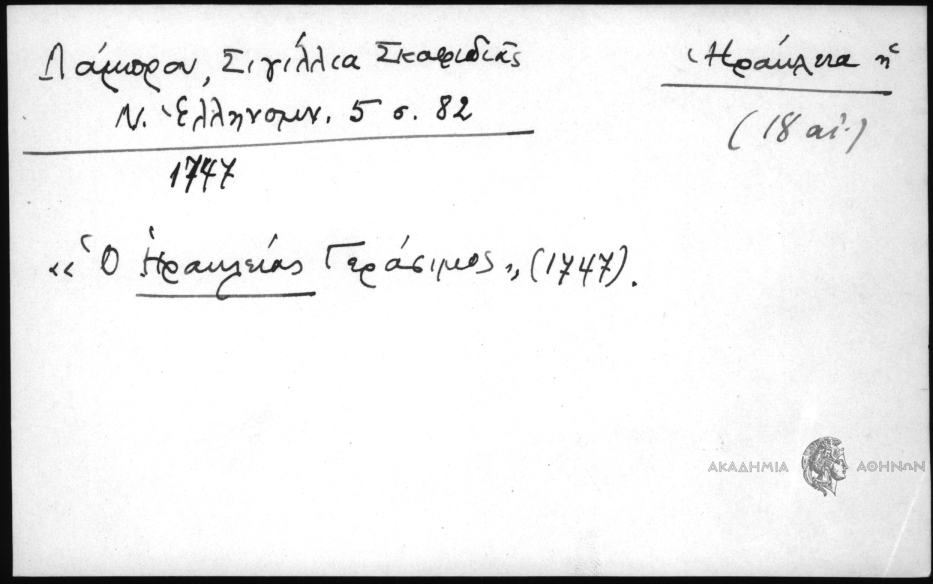 Λάμπρου, Σιγίλλια Σκαφιδιᾶς
Ν. Ἑλληνομν. 5 σ. 82
1747
Ἡράκλεια ἡ
(18 αἰ.)
«Ὁ Ἡρακλείας Γεράσιμος», (1747).
ΑΚΑΔΗΜΙΑ ΑΘΗΝΩΝ